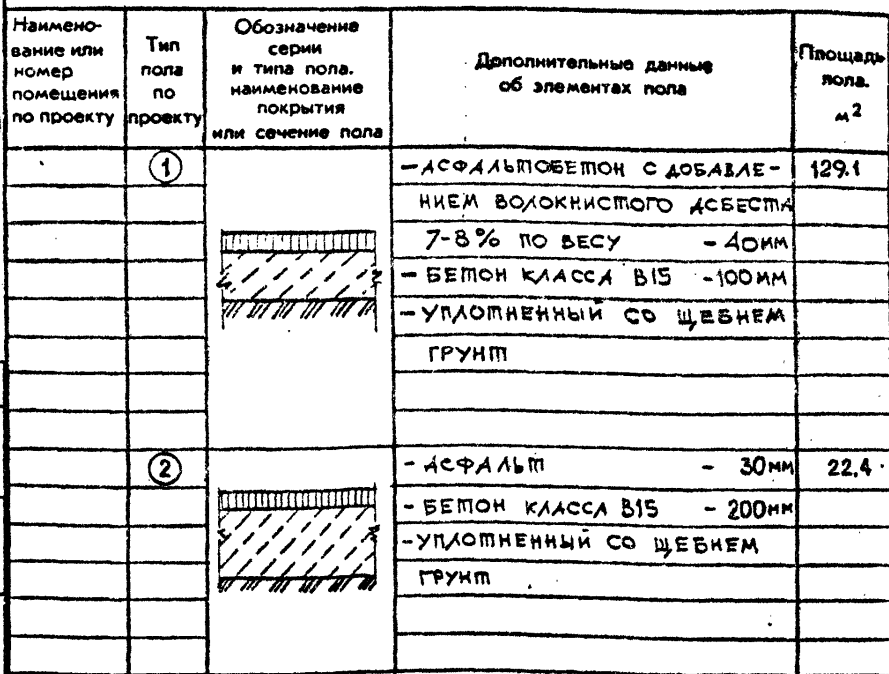 Наимено-
вание или
номер
помещения
по проекту
Тип
пола
по
проекту
Обозначение
серии
и типа пола.
наименование
покрытия
или сечение пола
Дополнительные данные
об элементах пола
Площадь
пола.
м2
1
- АСФАЛЬТОБЕТОН С ДОБАВЛЕ-
НИЕМ ВОЛОКНИСТОГО АСБЕСТА
7-8% ПО ВЕСУ - 40мм
- БЕТОН КЛАССА В15 -100мм
- УПЛОТНЕННЫЙ СО ЩЕБНЕМ
ГРУНТ
129.1
2
- АСФАЛЬТ - 30мм
- БЕТОН КЛАССА В15 - 200мм
- УПЛОТНЕННЫЙ СО ЩЕБНЕМ
ГРУНТ
22.4